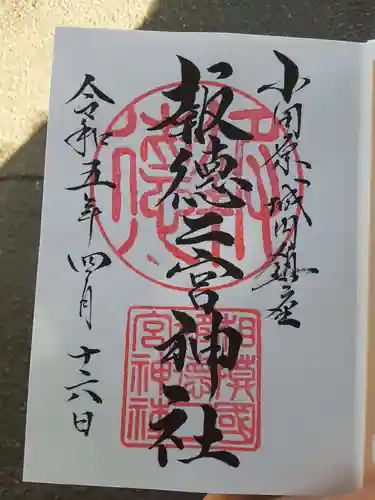 小田原城内鎮座
報徳二宮神社
令和五年四月十六日
相模國
宮神社